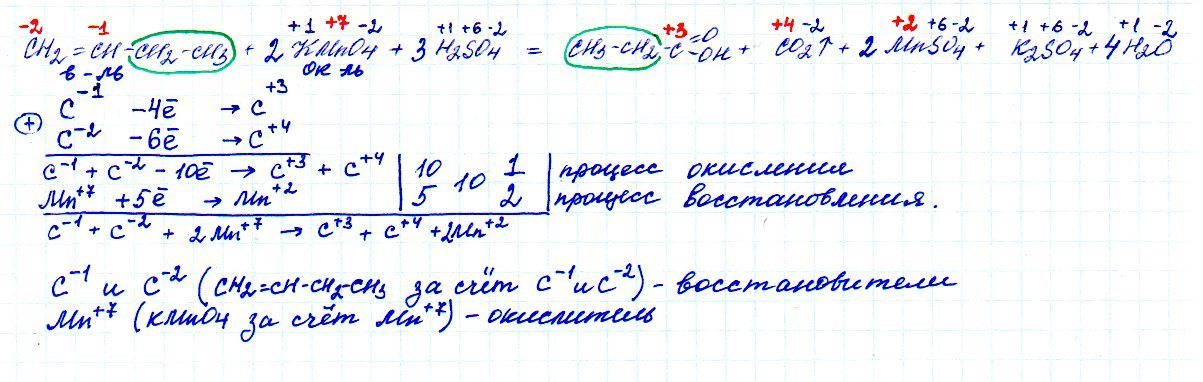 -2 -1 +1 +7 -2 +1 +6 -2 +3 +4 -2 +2 +6 -2 +1 +6 -2 +1 -2
CH2 = CH - CH2 - CH3 + 2 KMnO4 + 3 H2SO4 = CH3 - CH2 - C =O -OH + CO2↑ + 2 MnSO4 + K2SO4 + 4 H2O
в - ль ок ль
+ C⁻¹ - 4ē → C⁺³
C⁻² - 6ē → C⁺⁴
C⁻¹ + C⁻² - 10ē → C⁺³ + C⁺⁴ | 10 | 1 | процесс окисления
Mn⁺⁷ + 5ē → Mn⁺² | 5 10 2 | процесс восстановления.
C⁻¹ + C⁻² + 2Mn⁺⁷ → C⁺³ + C⁺⁴ + 2Mn⁺²
C⁻¹ и C⁻² (CH2=CH-CH2-CH3 за счёт C⁻¹ и C⁻²) - восстановители
Mn⁺⁷ (KMnO4 за счёт Mn⁺⁷) - окислитель